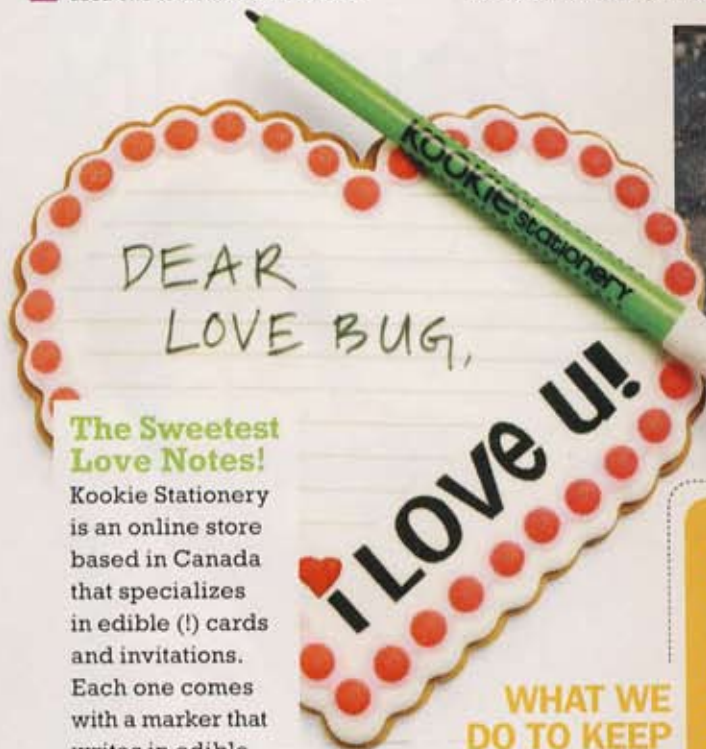 KOOKIE stationery
DEAR
LOVE BUG,
i LOVE U!
The Sweetest
Love Notes!
Kookie Stationery
is an online store
based in Canada
that specializes
in edible (!) cards
and invitations.
Each one comes
with a marker that
writes in edible
WHAT WE
DO TO KEEP